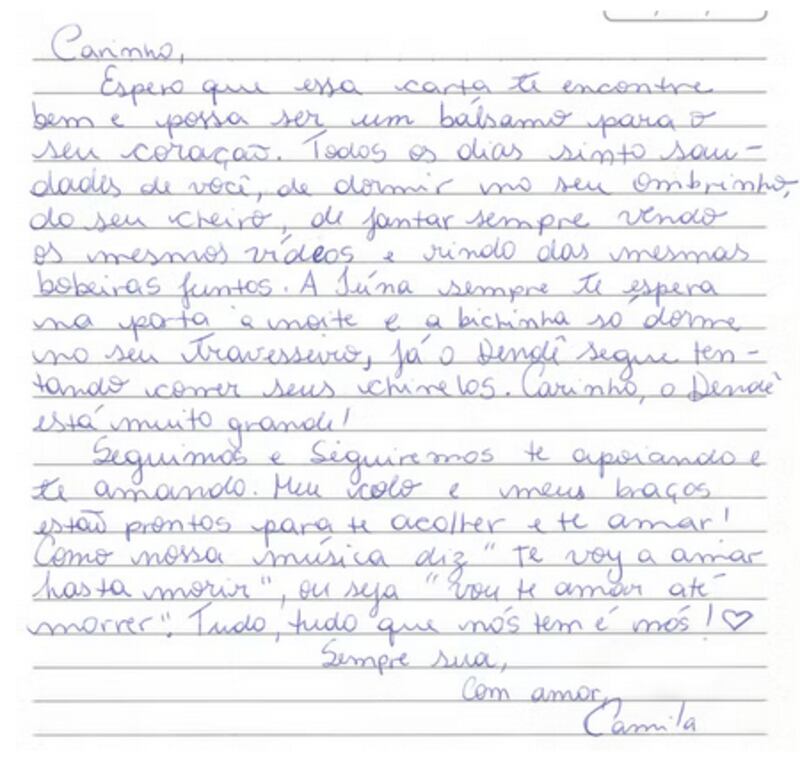 Carinho,
Espero que essa carta te encontre
bem e possa ser um bálsamo para o
seu coração. Todos os dias sinto sau-
dades de você, de dormir no seu ombrinho,
do seu cheiro, de jantar sempre vendo
os mesmos vídeos e rindo das mesmas
bobeiras juntos. A sempre te espera
na porta à noite e a bichinha só dorme
no seu travesseiro, já o Dendê segue ten-
tando comer seus chinelos. Carinho, o Dendê
está muito grande!
Seguimos e Seguiremos te apoiando e
te amando. Meu colo e meus braços
estão prontos para te acolher e te amar!
Como nossa música diz "te voy a amar
hasta morir", ou seja "vou te amar até
morrer". Tudo, tudo que nós tem é nós! ♡
Sempre sua,
Com amor,
Camila